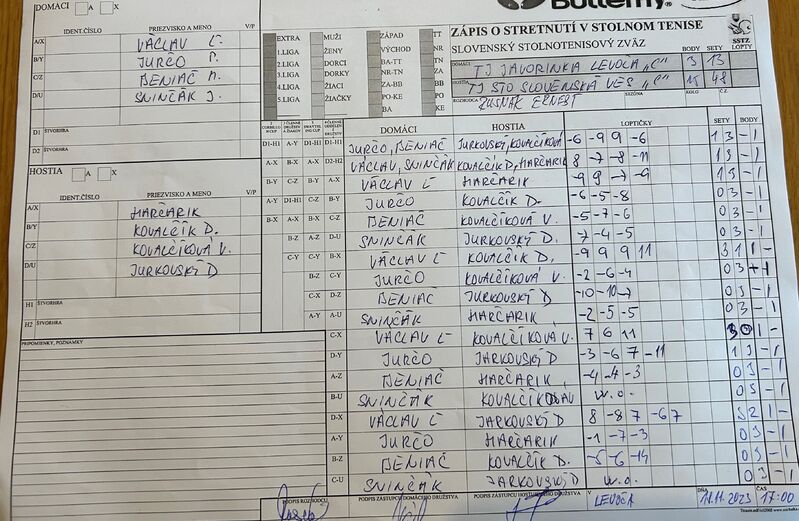 DOMÁCI A X
Butterfly
ZÁPIS O STRETNUTÍ V STOLNOM TENISE
SLOVENSKÝ STOLNOTENISOVÝ ZVÄZ
SSTZ
IDENT.ČÍSLO PRIEZVISKO A MENO V/P
A/X VÁCLAV Ľ.
B/Y JURČO P.
C/Z BENIAČ M.
D/U SNINČÁK J.
D1 ŠTVORHRA
D2 ŠTVORHRA
HOSTIA A X
IDENT.ČÍSLO PRIEZVISKO A MENO V/P
A/X HARČARIK
B/Y KOVALČÍK D.
C/Z KOVALČÍKOVÁ V.
D/U JURKOVSKÝ D
H1 ŠTVORHRA
H2 ŠTVORHRA
PRIPOMIENKY, POZNÁMKY
EXTRA MUŽI ZÁPAD TT
1.LIGA ŽENY VÝCHOD NR
2.LIGA DORCI BA-TT TN
3.LIGA DORKY NR-TN ZA
4.LIGA ŽIACI ZA-BB BB
5.LIGA ŽIAČKY PO-KE PO
BA KE
BODY SETY LOPTY
DOMÁCI TJ JAVORINKA LEVOČA "C" 3 13
HOSTIA TJ STO SLOVENSKÁ VES "C" 15 48
ROZHODCA ZUSŇÁK ERNEST SEZÓNA KOLO Č.Z.
DOMÁCI HOSTIA LOPTIČKY SETY BODY
D1-H1 A-Y D1-H1 D1-H1 JURČO, BENIAČ JURKOVSKÝ, KOVALČÍKOVÁ -6 -9 9 -6 1 3 - 1
A-X B-X A-X D2-H2 VÁCLAV, SNINČÁK KOVALČÍK D, HARČARIK 8 -7 -8 -11 1 3 - 1
B-Y C-Z B-Y A-X VÁCLAV Ľ HARČARIK -9 9 -7 -9 1 3 - 1
A-Y D1-H1 C-Z B-Y JURČO KOVALČÍK D. -6 -5 -8 0 3 - 1
B-X A-X B-X C-Z BENIAČ KOVALČÍKOVÁ V. -5 -7 -6 0 3 - 1
B-Z A-Z D-U SNINČÁK JURKOVSKÝ D. -7 -4 -5 0 3 - 1
C-Y C-Y B-X VÁCLAV Ľ KOVALČÍK D, -9 9 9 11 3 1 1 -
B-Z C-Y JURČO KOVALČÍKOVÁ V. -2 -6 -4 0 3 - 1
C-X D-Z BENIAČ JURKOVSKÝ D -10 -10 -7 0 3 - 1
A-Y A-U SNINČÁK HARČARIK, -2 -5 -5 0 3 - 1
C-X VÁCLAV Ľ KOVALČÍKOVÁ V. 7 6 11 3 0 1 -
D-Y JURČO JARKOVSKÝ D -3 -6 7 -11 1 3 - 1
A-Z BENIAČ HARČARIK, -4 -4 -3 0 3 - 1
B-U SNINČÁK w.o. 0 3 - 1
D-X VÁCLAV Ľ JARKOVSKÝ D 8 -8 7 -6 7 3 2 1 -
A-Y JURČO HARČARIK -1 -7 -3 0 3 - 1
B-Z BENIAČ KOVALČÍK D. -5 -6 -14 0 3 - 1
C-U SNINČÁK JARKOVSKÝ D w.o. 0 3 - 1
PODPIS ROZHODCU PODPIS ZÁSTUPCU DOMÁCEHO DRUŽSTVA PODPIS ZÁSTUPCU HOSŤUJÚCEHO DRUŽSTVA V LEVOČA DŇA 2023 ČAS 17:00